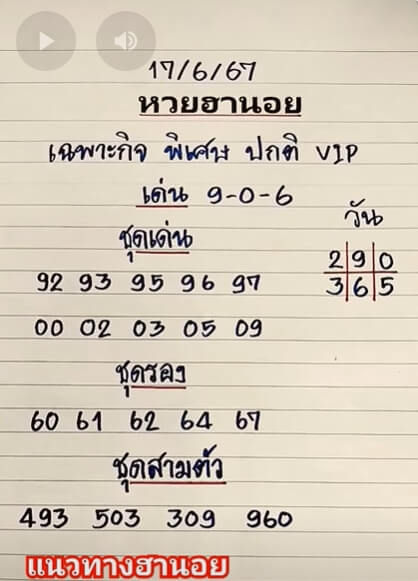 17/6/67
หวยฮานอย
เฉพาะกิจ พิเศษ ปกติ VIP
เด่น 9-0-6
วัน
ชุดเด่น
2 9 0
3 6 5
92 93 95 96 97
00 02 03 05 09
ชุดรอง
60 61 62 64 67
ชุดสามตัว
493 503 309 960
แนวทางฮานอย